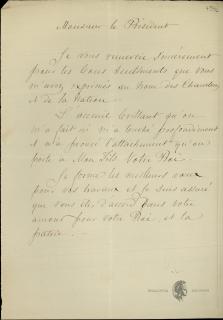 Monsieur le Président
Je vous remercie sincèrement
pour les bons sentiments que vous
m'avez exprimés au nom des Chambres
et de la Nation.
L'accueil brillant qu'on
m'a fait ici m'a touché profondément
et m'a prouvé l'attachement qu'on
porte à Mon Fils Votre Roi.
Je forme les meilleurs vœux
pour vos travaux et je suis assuré
que vous êtes d'accord dans votre
amour pour votre Roi et la
patrie.